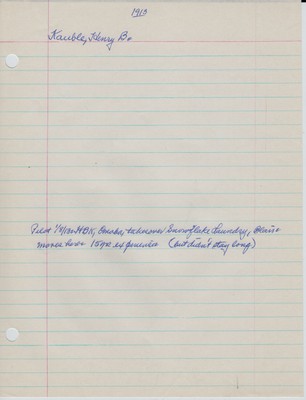 1913
Kauble, Henry B.
Pilot 1/9/13: HBK, Omaha, taken over Snowflake Laundry, Blair.
more than 15 yrs experience (but didn't stay long)